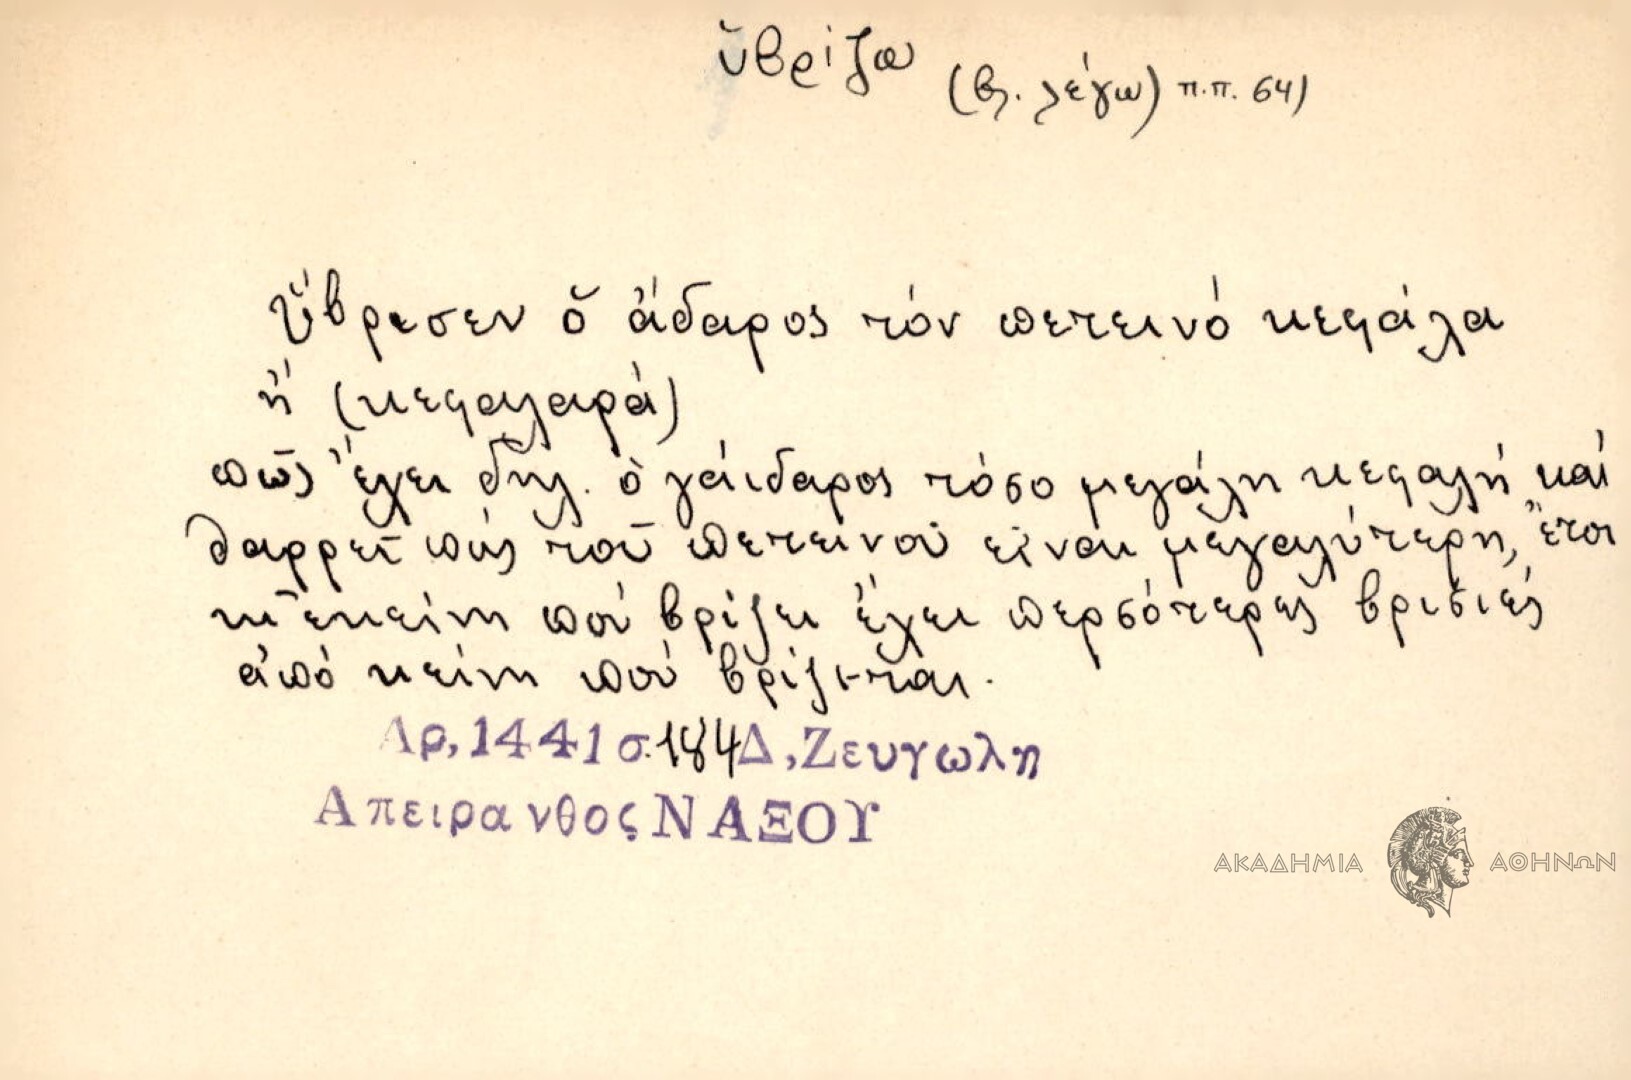 ὑβρίζω (βλ. λέγω) π.π. 64)
Ὕβρεσεν ὁ ἀδαρος τόν πετεινό κεφάλα
ἤ (κεφαλαρά)
πῶς ἔχει δηλ. ὁ γάιδαρος τόσο μεγάλη κεφαλή καί
θαρρεῖ πώς τοῦ πετεινοῦ εἶναι μεγαλύτερη, ἔτσι
κι ἐκείνη πού βρίζει ἔχει περσότερες βρισιές
ἀπό κείνη πού βρίζεται.
Αρ, 1441 σ. 184 Δ, Ζευγωλη
Απειρανθος ΝΑΞΟΥ
ΑΚΑΔΗΜΙΑ ΑΘΗΝΩΝ